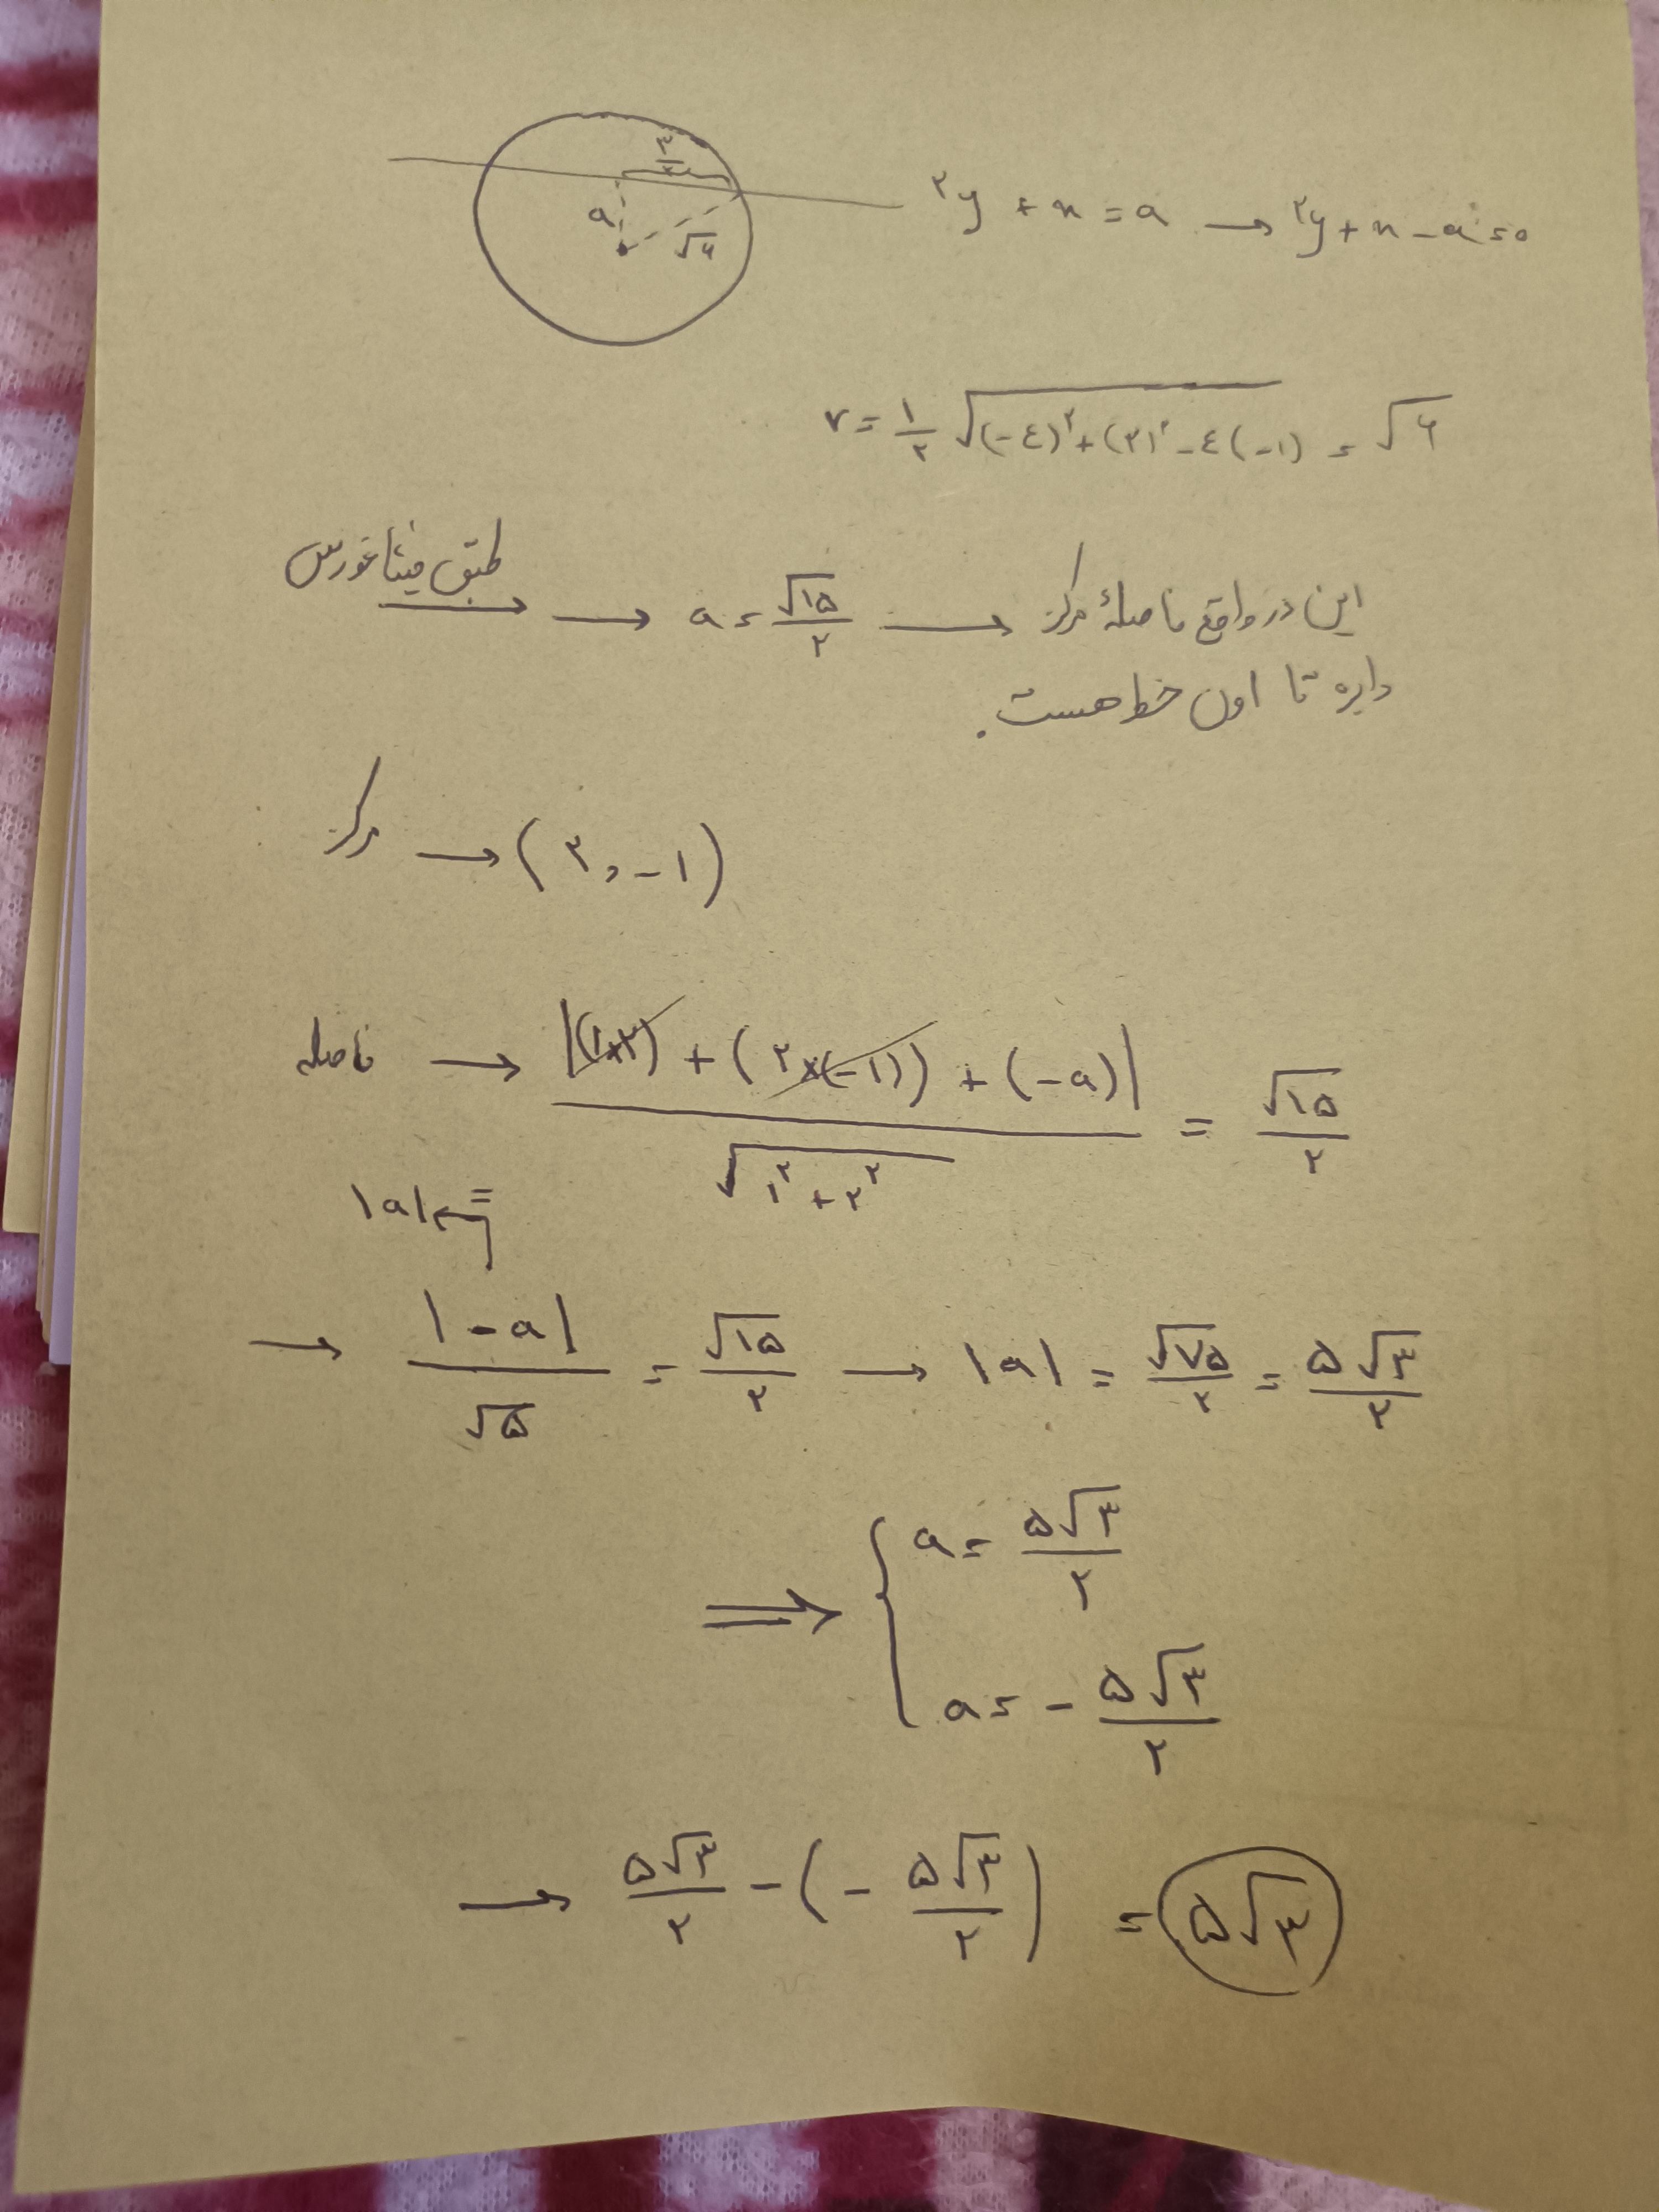 ۳/۲
a
√۶
۲y + x = a → ۲y + x - a = 0
r = ۱/۲ √((-٤)^۲ + (۲)^۲ - ٤(-۱)) = √۶
طبق فیثاغورس → → a = √۱۵/۲ → این در واقع فاصلهٔ مرکز
دایره تا اون خط هست.
مرکز → (۲, -۱)
فاصله → |(۱×۲) + (۲×(-۱)) + (-a)| / √(۱^۲ + ۲^۲) = √۱۵/۲
|a| =
→ |-a|/√۵ = √۱۵/۲ → |a| = √۷۵/۲ = ۵√۳/۲
⇒ { a = ۵√۳/۲
a = - ۵√۳/۲
→ ۵√۳/۲ - (- ۵√۳/۲) = ۵√۳